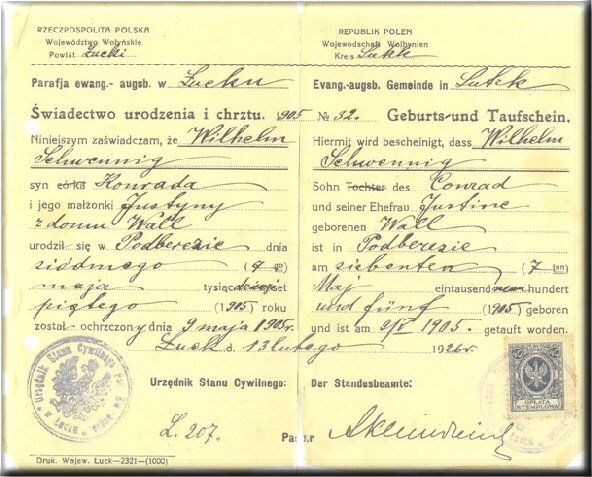 RZECZPOSPOLITA POLSKA
Województwo Wołyńskie
Powiat Łucki
Parafja ewang.- augsb. w Łucku
Świadectwo urodzenia i chrztu. 1905
Niniejszym zaświadczam, że Wilhelm
Schwennig
syn córka Konrada
i jego małżonki Justyny
z domu Wall
urodził się w Podberezie dnia
siódmego
maja tysiąc set
piątego (1905) roku
został - ochrzczony dnia 9 maja 1905 r.
REPUBLIK POLEN
Wojewodschaft Wolhynien
Kreis Lutzk
Evang.-augsb. Gemeinde in Lutzk
№ 32. Geburts-und Taufschein.
Hiermit wird bescheinigt, dass Wilhelm
Schwennig
Sohn Tochter des Conrad
und seiner Ehefrau Justine
geborenen Wall
ist in Podberezie
am siebenten (7 ten)
Mai eintausend hundert
und fünf (1905) geboren
und ist am 9/V 1905. getauft worden.
Łuck d. 13 lutego 1926 r.
Urzędnik Stanu Cywilnego: Der Standesbeamte:
L. 207. Pastor
Urzędnik Stanu Cywilnego
w Łucku
40 40
OPŁATA
STEMPLOWA
Druk. Wojew. Łuck—2321—(1000)